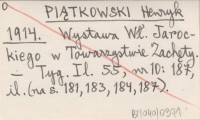 PIĄTKOWSKI Henryk
1914. Wystawa Wł. Jaroc-
kiego w Towarzystwie Zachęty.
– Tyg. Il. 55, nr 10: 187,
il. (na s. 181, 183, 184, 187).